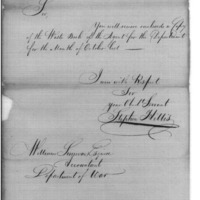 Sir,
You will receive enclosed a Copy
of the Waste Book of the Agent for the Department
for the Month of October last —
I am with Respect
Sir
your Obd. Servant
Stephen Hills
William Simmons Esquire
Accountant
Department of War